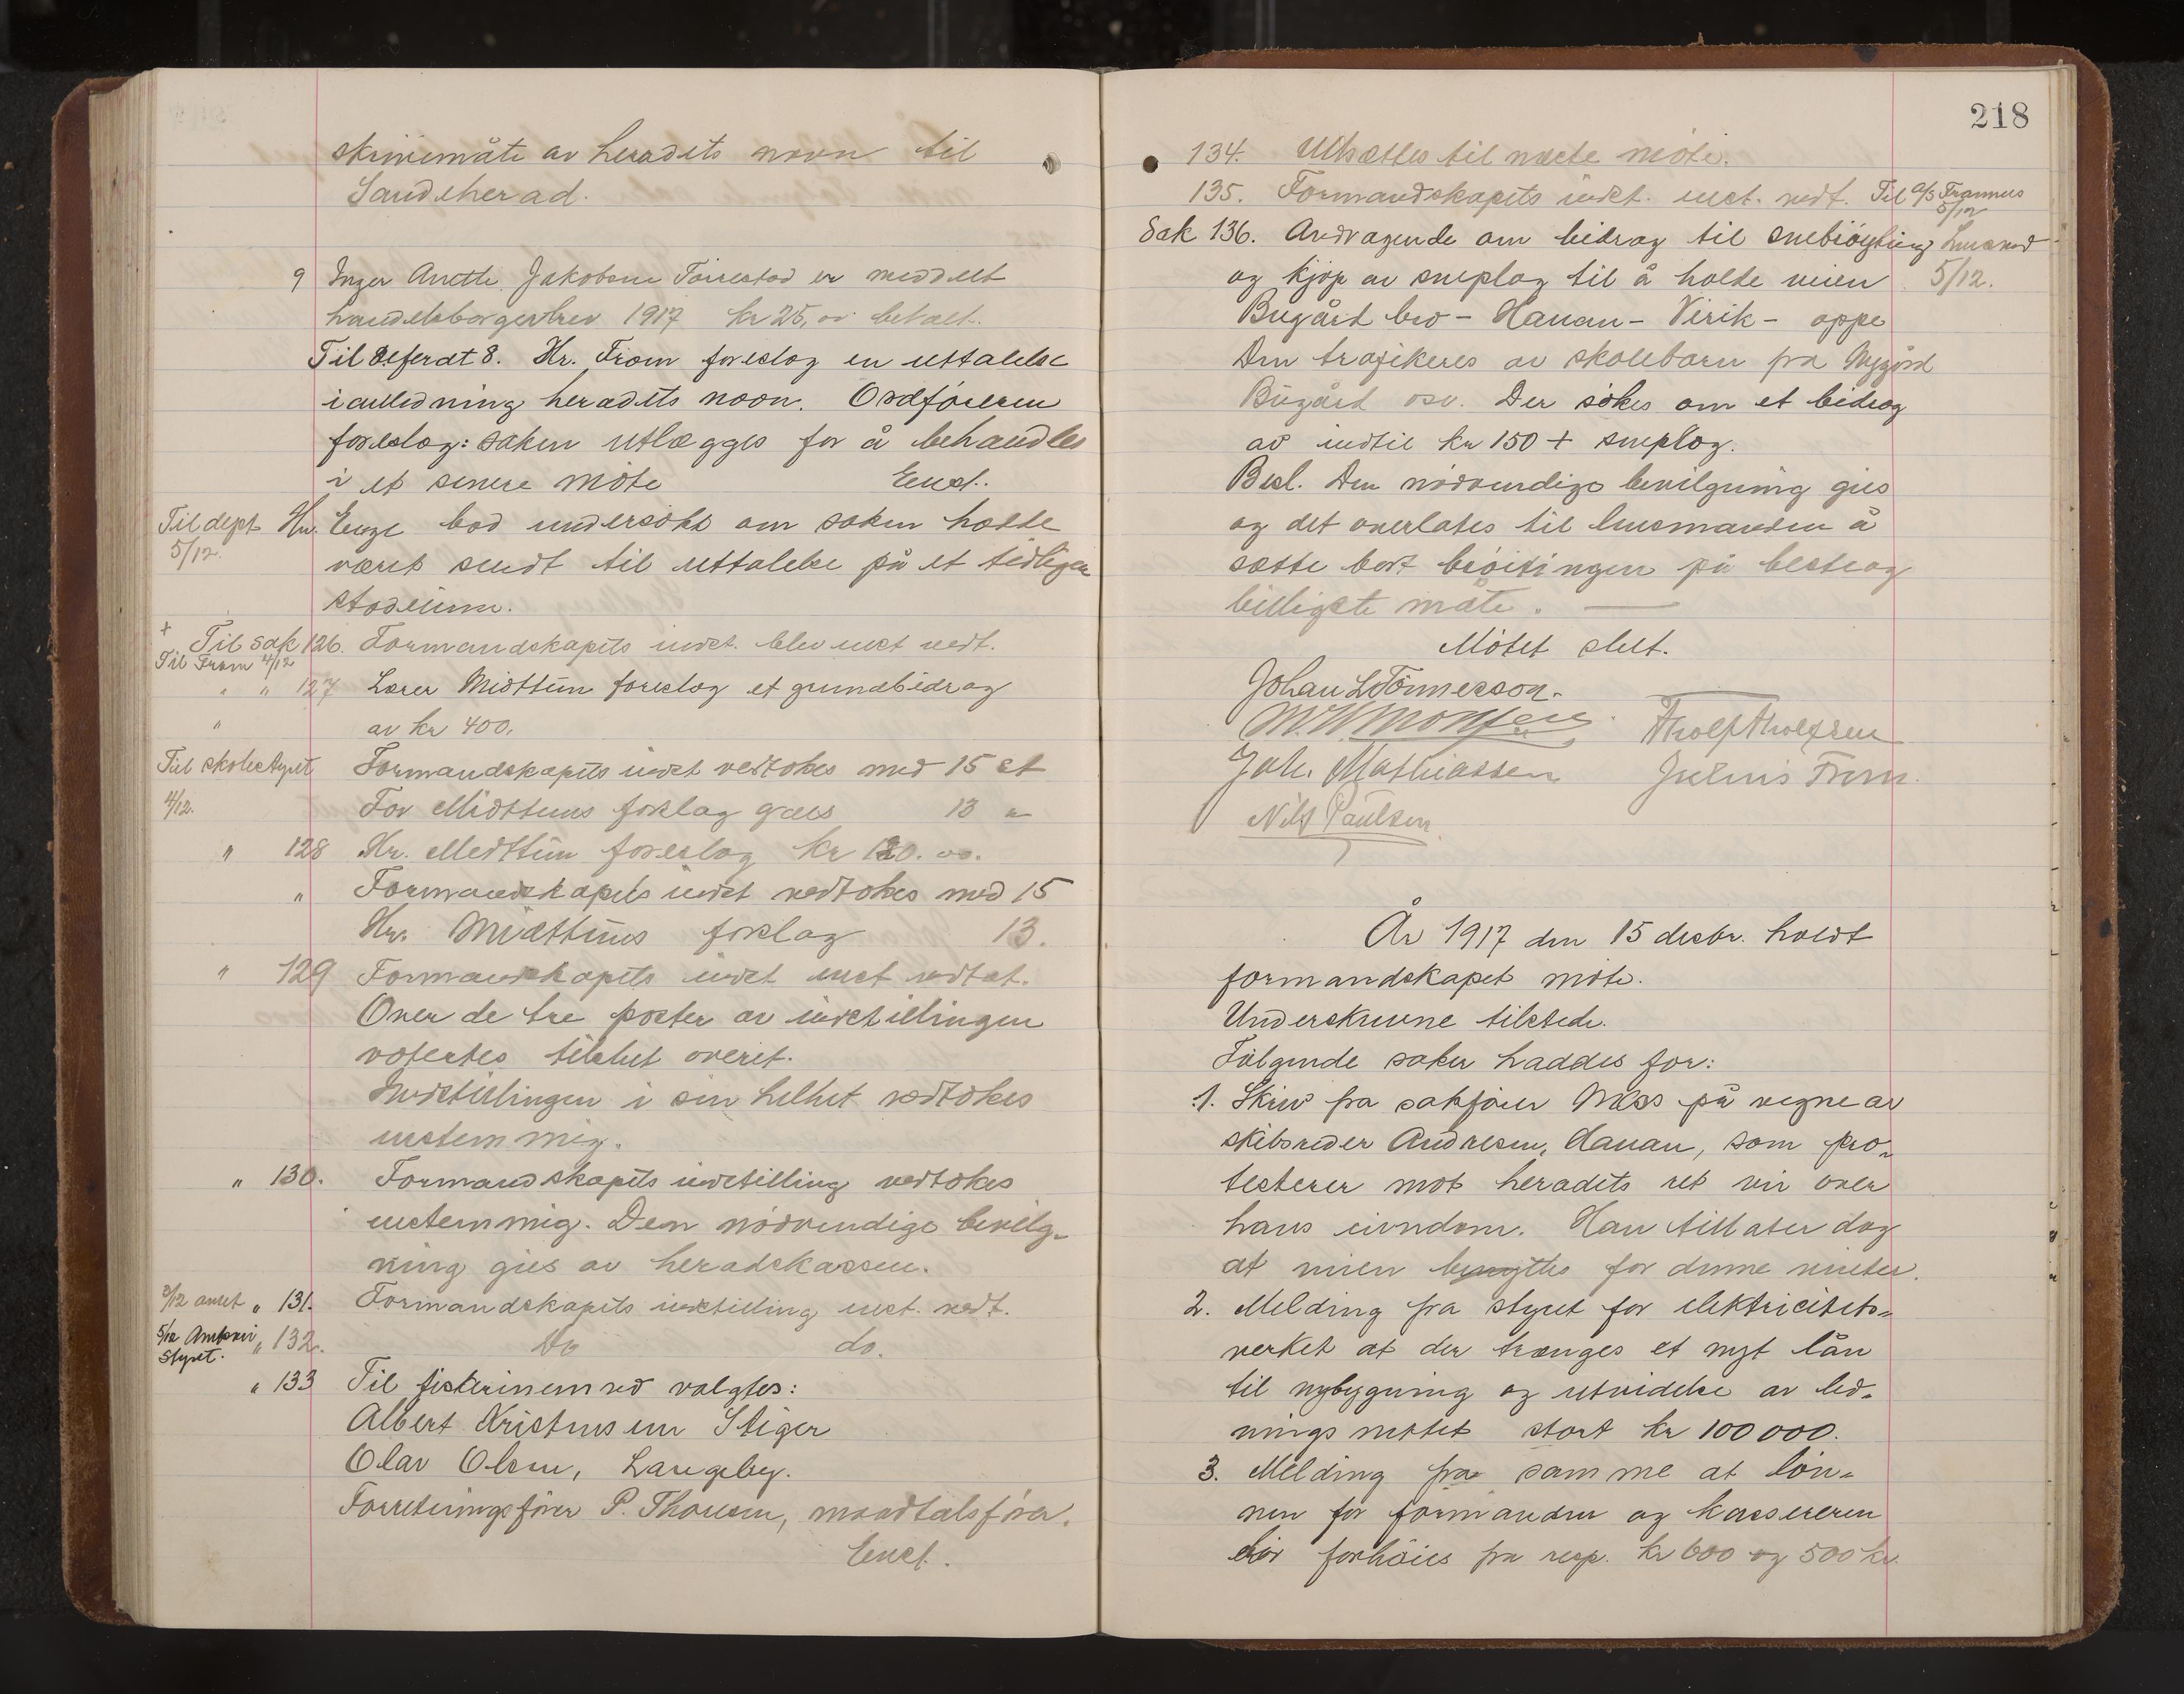 skrivemåte av heradets navn til
Sandeherad.
9 Inger Anette Jakobsen Törrestad er meddelt
handelsborgerbrev 1917 kr 25,00 betalt.
Til Referat 8. Hr. From foreslog en uttalelse
i anledning heradets navn. Ordföreren
foreslog: saken utlægges for å behandles
i et senere möte Enst.
Til dept. 5/12. Hr. Enge bad undersökt om saken hadde
været sendt til uttalelse på et tidligere
stadium.
+ Til sak 126. Formandskapets indst. blev enst vedt.
Til From 4/12
" " 127 Lærer Midttun foreslog et grundbidrag
" av kr 400.
Til skolestyret Formandskapets indst vedtokes med 15 st
4/12. For Midttuns forslag gaves 13 "
" 128 Hr. Midttun foreslog kr 120.00.
" Formandskapets indst vedtokes med 15
Hr. Midttuns forslag 13.
" 129 Formandskapets indst enst vedtat.
Over de tre poster av indstillingen
votertes tilslut överet.
Indstillingen i sin helhet vedtokes
enstemmig.
" 130. Formandskapets indstilling vedtokes
enstemmig. Den nödvendige bevilg-
ning gies av heradskassen.
5/12 amtet " 131. Formandskapets indstilling enst. vedt.
5/12 Amtsveistyret. " 132. Do do.
" 133 Til fiskerinemnd valgtes:
Albert Kristensen Stiger
Olav Olsen, Langeby.
Forretningsförer P. Thoresen, mandtalsförer.
Enst.
218
134. Utsættes til næste möte.
135. Formandskapets indst. enst. vedt. Til a/s Framnes 5/12
Sak 136. Andragende om bidrag til snebröyting Lensmand
og kjöp av sneplog til å holde veien 5/12.
Bugård bro - Hauan - Virik - oppe
Den trafikeres av skolebarn fra Nygård
Bugård osv. Der sökes om et bidrag
av indtil kr 150 + sneplog.
Besl. Den nödvendige bevilgning gies
og det overlates til lensmanden å
sætte bort bröitingen på beste og
billigste måte.
Mötet slut.
Johan L Tönnesson.
M. W. Monsen Tholf Tholfsen
Joh. Mathiassen Julius From.
Nils Paulsen.
År 1917 den 15 desbr. holdt
formandskapet möte.
Underskrevne tilstede.
Fölgende saker haddes for:
1. Skriv fra sakförer Næss på vegne av
skibsreder Andresen, Hauan, som pro-
testerer mot heradets ret vei over
hans eiendom. Han tillater dog
at veien benyttes for denne vinter.
2. Melding fra styret for elektricitets-
verket at der trænges et nyt lån
til nybygning og utvidelse av led-
ningsnettet stort kr 100 000.
3. Melding fra samme at lön-
nen for formanden og kassereren
bör forhöies fra resp. kr 600 og 500 kr.